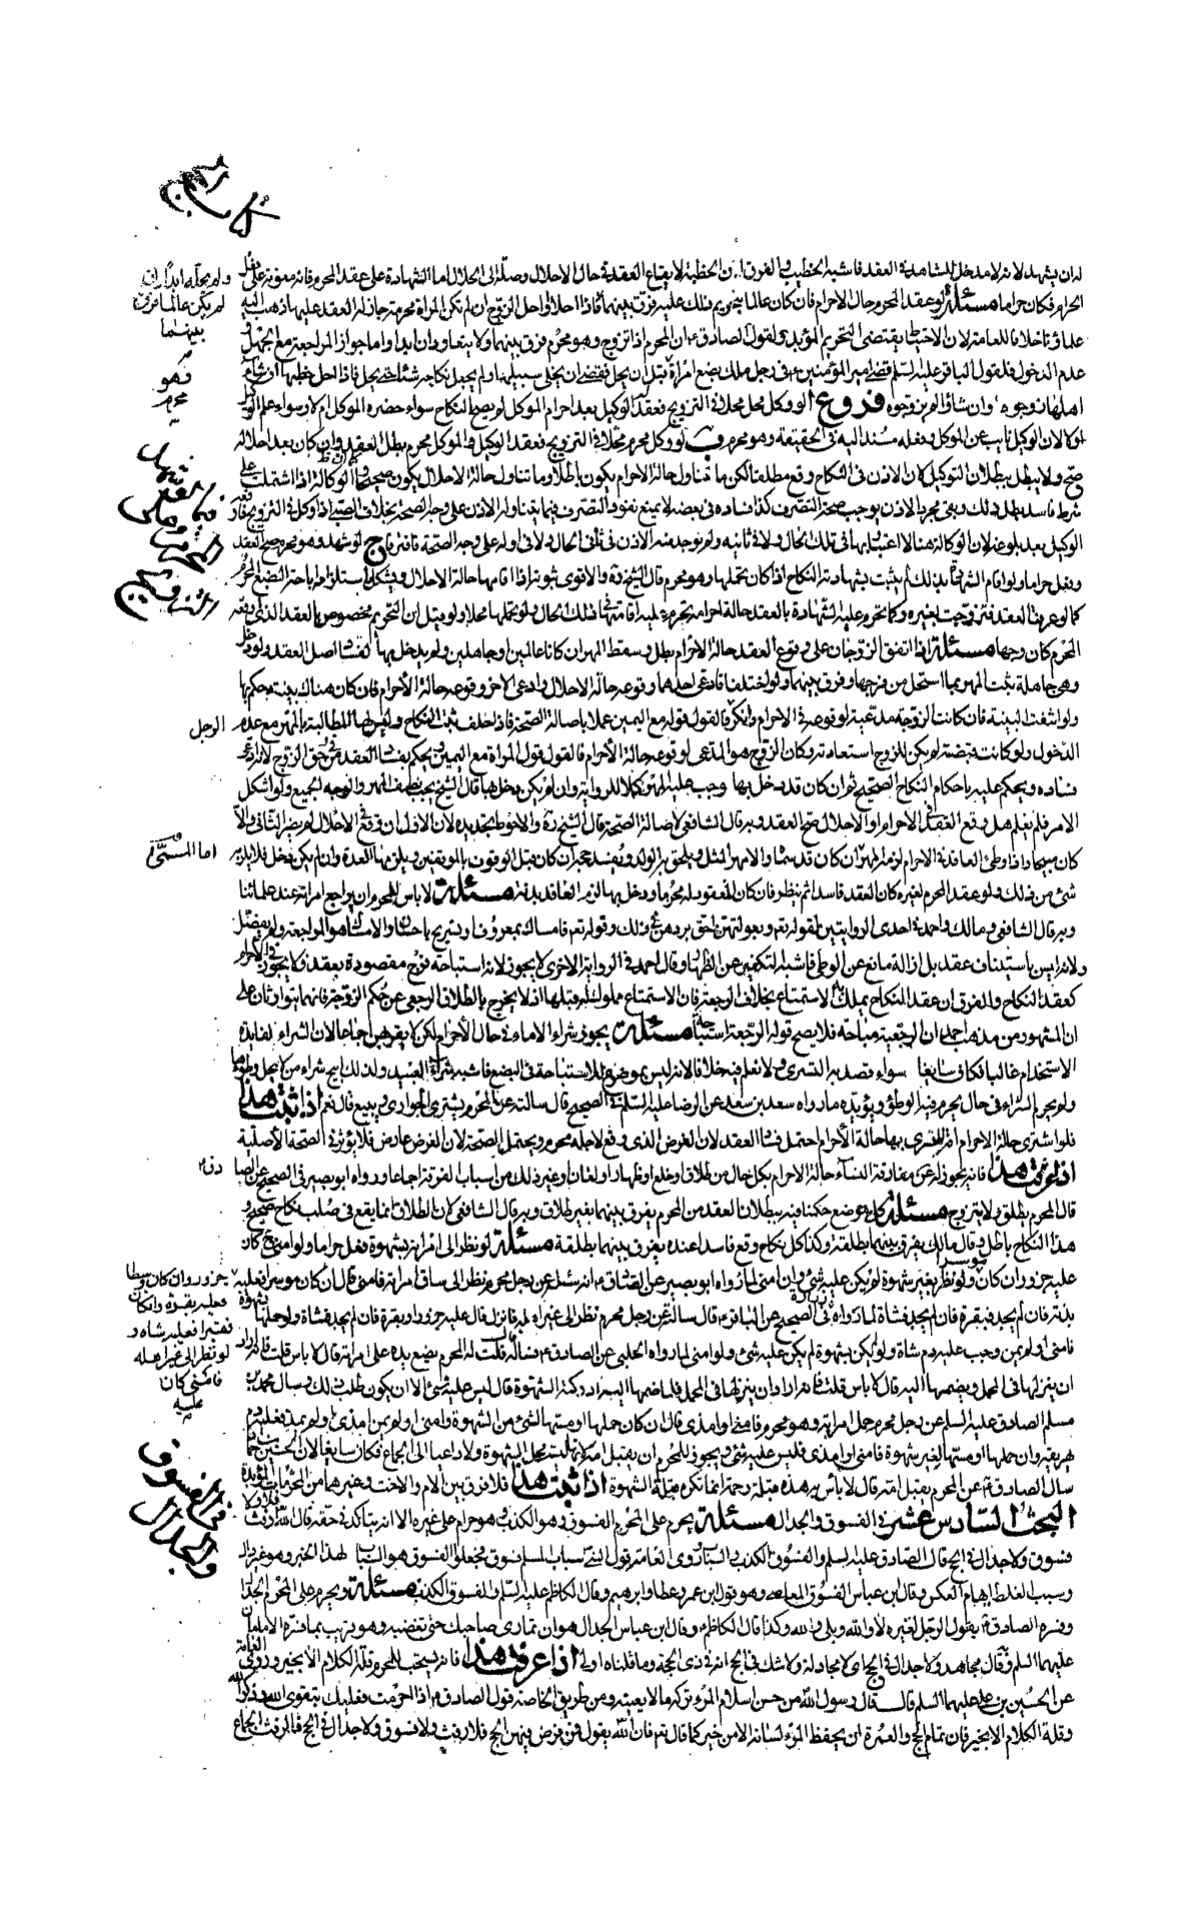 له ان يشهد لانه لا مدخل للشاهد في العقد فاشبه الخطيب والفرق ان الخطبة لايقاع العقد في حال الاحلال وصلة الى الحلال اما الشهادة على عقد المحرم فانه معونة على فعل
الحرام فكان حراما مسئلة لو عقد المحرم حال الاحرام فان كان عالما بتحريم ذلك عليه فرق بينهما فاذا احلا او احل الزوج ان لم تكن المراة محرمة جاز له العقد عليها ذهب اليه
علماؤنا خلافا للعامة لان الاحتياط يقتضى التحريم المؤبد ولقول الصادق ع ان المحرم اذا تزوج وهو محرم فرق بينهما ولا يتعاودان ابدا واما جواز المراجعة مع الجهل و
عدم الدخول فلقول الباقر عليه السلم قضى امير المؤمنين ع فى رجل ملك بضع امراة قبل ان يحل فقضى ان يخلى سبيلها ولم يجعل نكاحه شيئا حتى يحل فاذا احل خطبها ان شاء
اهلها زوجوه وان شاؤا لم يزوجوه فروع ا لو وكل محل محلا فى التزويج فعقد الوكيل بعد احرام الموكل لم يصح النكاح سواء حضره الموكل ام لا وسواء علم الوكيل
او لا لان الوكيل نايب عن الموكل وفعله مسند اليه فى الحقيقة وهو محرم ب لو وكل محرم محلا فى التزويج فعقد الوكيل والموكل محرم بطل العقد وان كان بعد احلاله
صح ولا يبطل ببطلان التوكيل لان الاذن فى النكاح وقع مطلقا لكن ما تناول حالة الاحرام يكون باطلا وما تناول حالة الاحلال يكون صحيحا اما الوكالة اذا اشتملت على
شرط فاسد بطل ذلك وبقى مجرد الاذن يوجب صحة التصرف كذا فساده فى بعضه لا يمنع نفوذ التصرف فيما يتناوله الاذن على وجه الصحة بخلاف الصبى اذا وكل فى التزويج
الوكيل بعد بلوغه لان الوكالة هنا لا اعتبار بها فى تلك الحال ولا فى ثانيه ولم يوجد منه الاذن فى ثانى الحال ولا فى اوله على وجه الصحة فافترقا ج لو شهد وهو محرم صح العقد
وفعل حراما ولو اقام الشهادة بذلك لم يثبت بشهادته النكاح اذا كان تحملها وهو محرم قال الشيخ ره والاقوى ثبوته اذا اقامها حالة الاحلال
المحرم كان وجها مسئلة اذا اتفق الزوجان على وقوع العقد حالة الاحرام بطل وسقط المهر ان كانا عالمين او جاهلين ولم يدخل بها لفساد اصل العقد ولو دخل
وهى جاهلة ثبت المهر بما استحل من فرجها وفرق بينهما ولو اختلفا فادعى احدهما وقوعه حالة الاحلال وادعى الاخر وقوعه حالة الاحرام فان كان هناك بينة حكم بها
ولو انتفت البينة فان كانت الزوجة مدعية لوقوعه فى الاحرام وانكر فالقول قوله مع اليمين عملا باصالة الصحة فاذا حلف ثبت النكاح وليس لها المطالبة بالمهر مع عدم
الدخول ولو كانت قبضته لم يكن للزوج استعادته وكان الزوج هو المدعى لوقوعه حالة الاحرام فالقول قول المراة مع اليمين ويحكم بفساد العقد فى حق الزوج لانه ادعى
فساده ويحكم عليه باحكام النكاح الصحيح ثم ان كان قد دخل بها وجب عليه المهر كملا للرواية وان لم يكن دخل بها قال الشيخ يجب نصف المهر والوجه الجميع ولو اشكل
الامر فلم يعلم هل وقع العقد فى الاحرام او الاحلال صح العقد وبه قال الشافعى لاصالة الصحة قال الشيخ ره والاحوط تجديده لان الاول ان وقع فى الاحلال لم يضر الثانى والا
كان مبيحا واذا وطئ العاقد فى الاحرام لزمه المهر
شئ من ذلك ولو عقد المحرم لغيره كان العقد فاسدا ثم ينظر فان كان المعقود له محرما ودخل بها لزم العاقد بدنة مسئلة لا باس للمحرم ان يراجع امراته عند علمائنا
وبه قال الشافعى ومالك واحمد فى احدى الروايتين لقوله تعم وبعولتهن احق بردهن فى ذلك وقوله تعم فامساك بمعروف او تسريح باحسان والامساك هو المراجعة ولم يفصل
ولانه ليس باستيناف عقد بل ازالة مانع عن الوطى فاشبه التكفير عن الظهار وقال احمد فى الرواية الاخرى لا يجوز لانه استباحة فرج مقصودة بعقد فلا يجوز فى الاحرام
كعقد النكاح والفرق ان عقد النكاح يملك به الاستمتاع بخلاف الرجعة فان الاستمتاع مملوك له قبلها اذ لا يخرج بالطلاق الرجعى عن حكم الزوجة فانهما يتوارثان على
ان المشهور من مذهب احمد ان الرجعية مباحة فلا يصح قوله الرجعة استباحة مسئلة يجوز شراء الاماء فى حال الاحرام لكن لا يقربهن اجماعا لان الشراء لفايدة
الاستخدام غالبا فكان سايغا سواء قصد به التسرى ولا نعلم فيه خلافا لانه ليس بموضوع للاستباحة فى البضع فاشبه شراء العبيد ولذلك ابيح شراء من لا يحل وطؤها
ولم يحرم الشراء فى حال يحرم فيه الوطؤ ويؤيده ما رواه سعد بن سعد عن الرضا عليه السلم فى الصحيح قال سالته عن المحرم يشترى الجوارى ويبيع قال نعم اذا ثبت هذا
فلو اشترى حالة الاحرام امة للتسرى بها حالة الاحرام احتمل فساد العقد لان الغرض الذى وقع لاجله محرم ويحتمل الصحة لان الغرض عارض فلا يؤثر فى الصحة الاصلية
اذا عرفت هذا فانه يجوز له عن مفارقة النساء حالة الاحرام بكل حال من طلاق او خلع او ظهار او لعان او غير ذلك من اسباب الفرقة اجماعا ورواه ابو بصير فى الصحيح عن الصادق ع
قال المحرم يطلق ولا يتزوج مسئلة كل موضع حكمنا فيه ببطلان العقد من المحرم يفرق بينهما بغير طلاق وبه قال الشافعى لان الطلاق انما يقع فى صلب نكاح صحيح و
هذا النكاح باطل وقال مالك يفرق بينهما بطلقة وكذا كل نكاح وقع فاسدا عنده يفرق بينهما بطلقة مسئلة لو نظر الى امراته بشهوة فعل حراما ولو امنى كان
عليه جزور وان كان ولو نظر بغير شهوة لم يكن عليه شئ وان امنى لما رواه ابو بصير عن الصادق ع انه سئل عن رجل محرم نظر الى ساق امراته فامنى قال ان كان موسرا فعليه
بدنة فان لم يجد فبقرة فان لم يجد فشاة لما رواه زرارة فى الصحيح عن الباقر ع قال سالته عن رجل محرم نظر الى غير اهله فانزل قال عليه جزور او بقرة فان لم يجد فشاة ولو حملها بشهوة
فامنى او لم يمن وجب عليه دم شاة ولو لم يكن بشهوة لم يكن عليه شئ ولو امنى لما رواه الحلبى عن الصادق ع قال قلت له المحرم يضع يده على امراته قال لا باس قلت فانه اراد
ان ينزلها فى المحمل ويضمها اليه قال لا باس قلت فانه اراد ان ينزلها فى المحمل فلما ضمها اليه ادركته الشهوة قال ليس عليه شئ الا ان يكون طلب ذلك وسال محمد بن
مسلم الصادق عليه السلم عن رجل محرم حمل امراته وهو محرم فامنى او امذى قال ان كان حملها او مسها لشئ من الشهوة وامنى او لم يمن امذى او لم يمذ فعليه دم
يهريقه وان حملها او مسها لغير شهوة فامنى او امذى فليس عليه شئ ويجوز للمحرم ان يقبل امه لانها ليست محل الشهوة ولا داعيا الى الجماع فكان سايغا لان الحسين بن حماد
سال الصادق ع عن المحرم يقبل امه قال لا باس به هذه قبلة رحمة انما تكره قبلة الشهوة اذا ثبت هذا فلا فرق بين الام والاخت وغيرهما من المحرمات المؤبدة
البحث السادس عشر فى الفسوق والجدال مسئلة يحرم على المحرم الفسوق وهو الكذب وهو حرام على غيره الا انه يتاكد فى حقه قال الله تعم فلا رفث ولا
فسوق ولا جدال فى الحج قال الصادق عليه السلم والفسوق الكذب والسباب
وسبب الغلط ايهام العكس وقال ابن عباس الفسوق المعاصى وهو قول ابن عمر وعطا وابرهيم وقال الكاظم عليه السلم والفسوق الكذب مسئلة ويحرم على المحرم الجدال
وفسره الصادق ع بقول الرجل لغيره لا والله وبلى والله وكذا قال الكاظم ع وقال ابن عباس الجدال هو ان تمارى صاحبك حتى تغضبه وهو قريب مما فسره الامامان
عليهما السلم وقال مجاهد ولا جدال فى الحج اى لا مجادلة ولا شك فى الحج انه فى ذى الحجة وما قلناه اولى اذا عرفت هذا فانه يستحب للمحرم قلة الكلام الا بخير وروى العامة
عن الحسين بن على عليهما السلم قال قال رسول الله من حسن اسلام المرء تركه ما لا يعنيه ومن طريق الخاصة قول الصادق ع اذا احرمت فعليك بتقوى الله وذكر الله
وقلة الكلام الا بخير فان تمام الحج والعمرة ان يحفظ المرء لسانه الا من خير كما قال تعم فان الله يقول فمن فرض فيهن الحج فلا رفث ولا فسوق ولا جدال فى الحج فالرفث الجماع
ولم يحل له ابدا وان
لم يكن عالما فرق
بينهما
فهو
محرم
الرجل
اما المسمى
جزور وان كان متوسطا
فعليه بقرة وان كان
فقيرا فعليه شاة و
لو نظر الى غير اهله
فامنى كان
عليه
فى الفسوق
والجدال